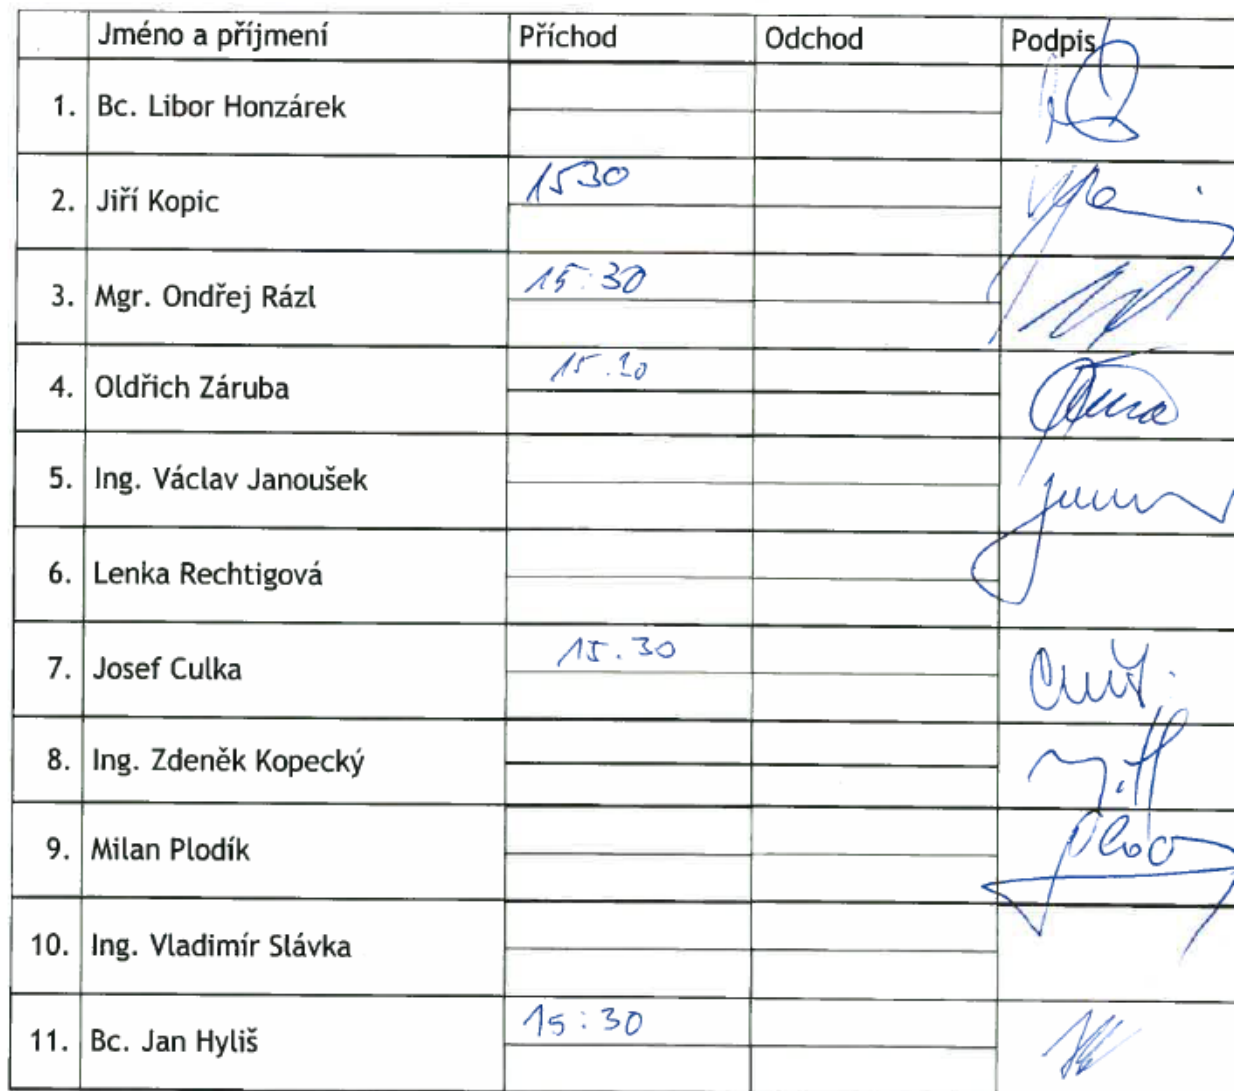 Jméno a příjmení Příchod Odchod Podpis
1. Bc. Libor Honzárek
2. Jiří Kopic 1530
3. Mgr. Ondřej Rázl 15:30
4. Oldřich Záruba
5. Ing. Václav Janoušek
6. Lenka Rechtigová
7. Josef Culka 15.30
8. Ing. Zdeněk Kopecký
9. Milan Plodík
10. Ing. Vladimír Slávka
11. Bc. Jan Hyliš 15:30